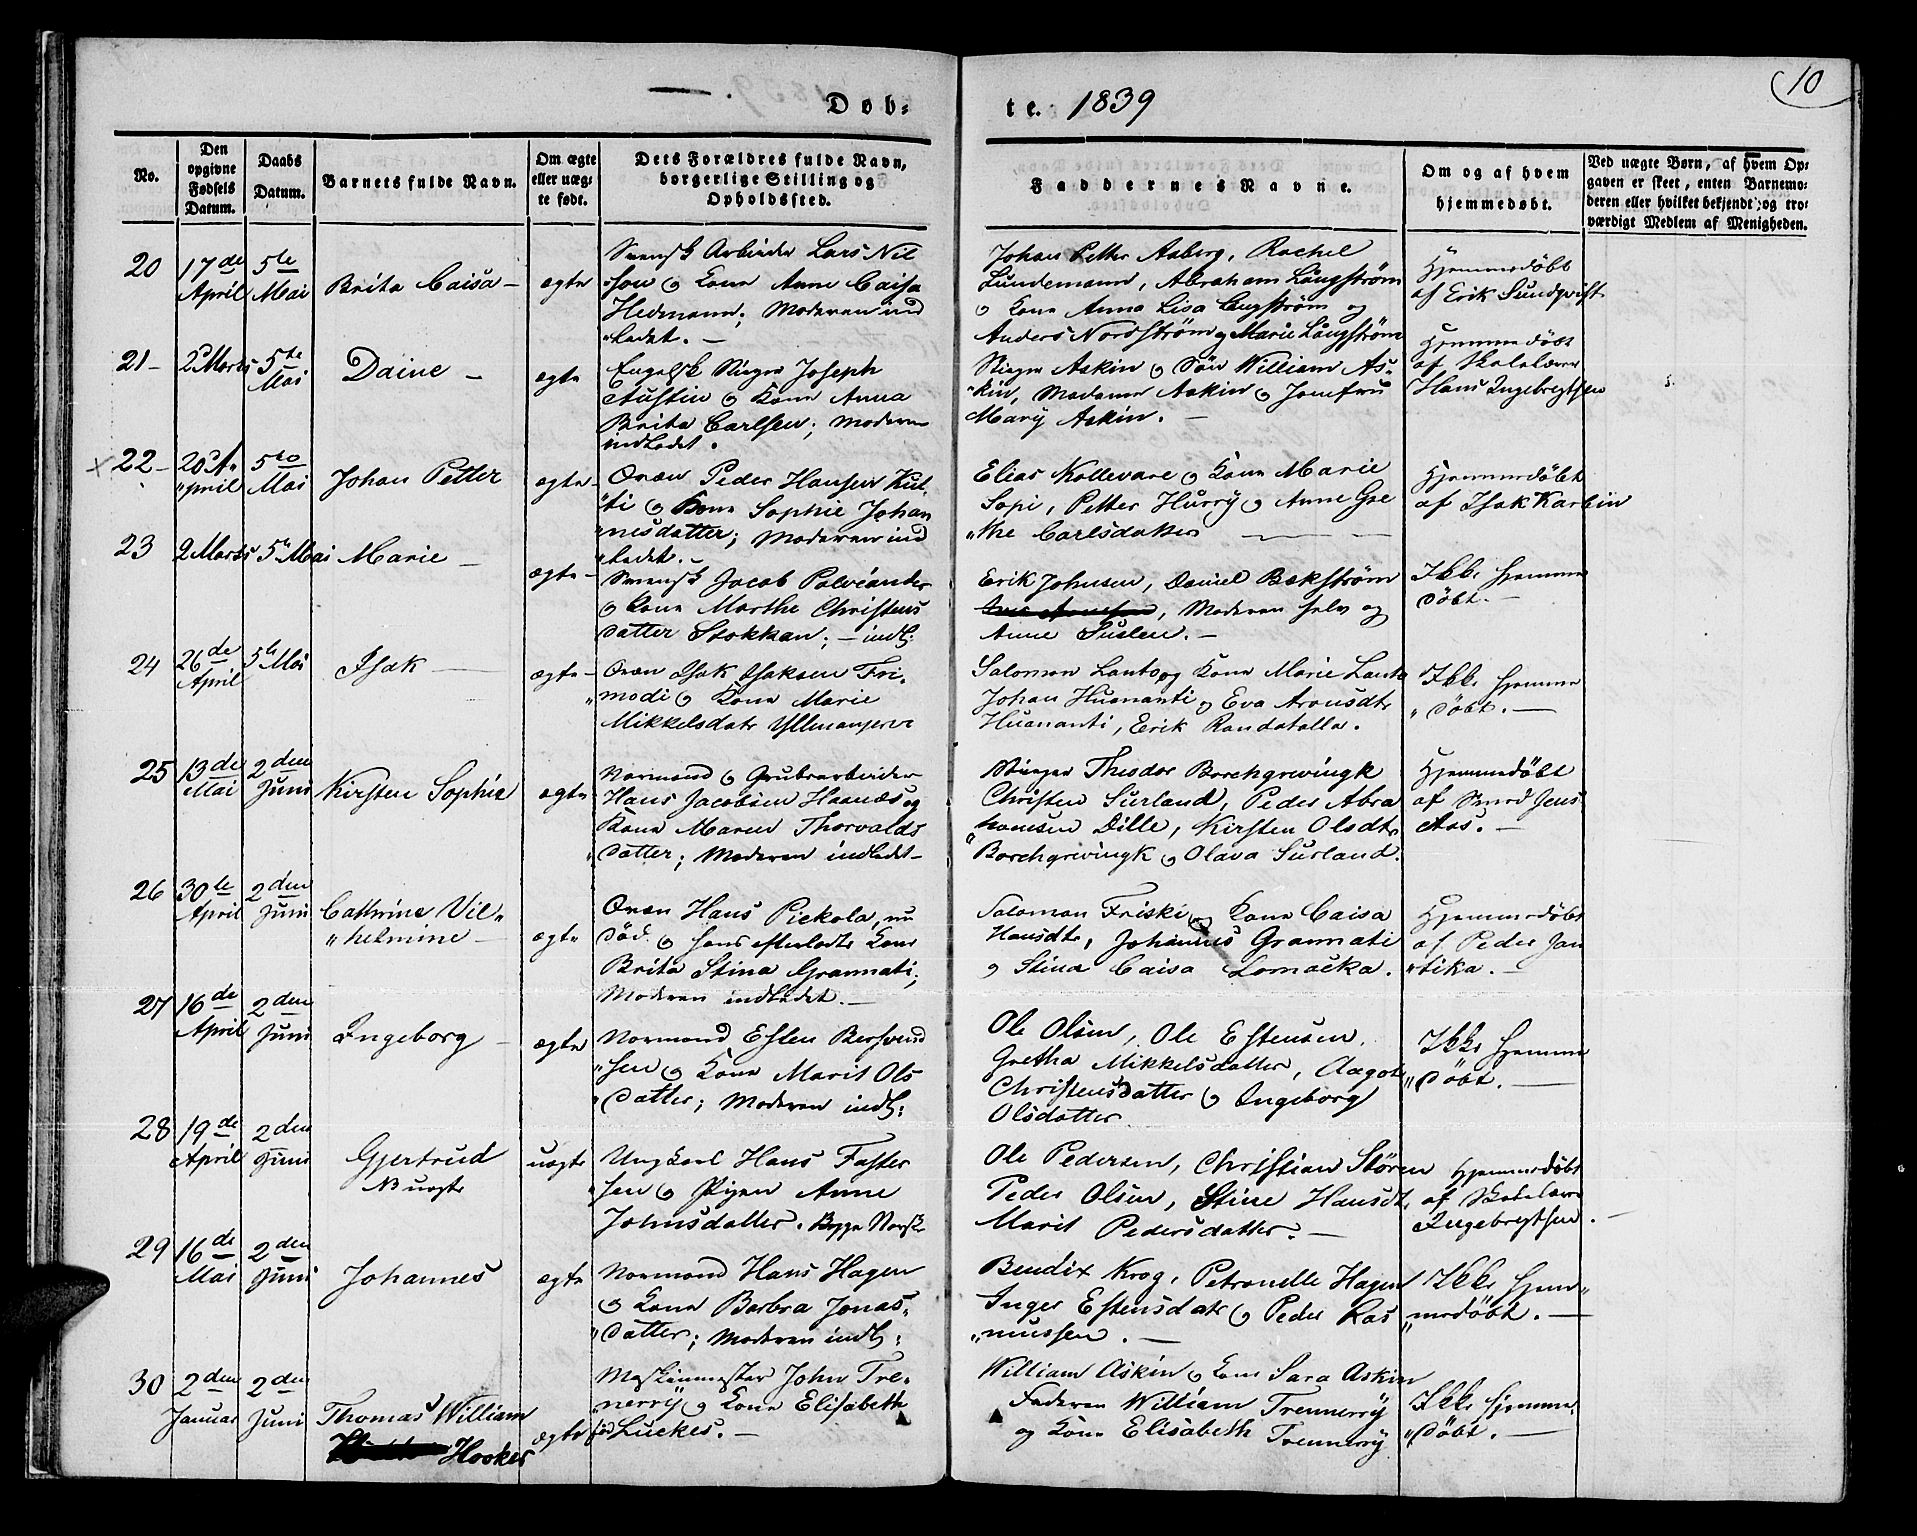 Døb-
te. 1839
10
No.
Den opgivne Fødsels Datum.
Daabs Datum.
Barnets fulde Navn.
Om ægte eller uæg- te født.
Dets Forældres fulde Navn, borgerlige Stilling og Opholdssted.
Faddernes Navne.
Om og af hvem hjemmedøbt.
Ved uægte Børn, af hvem Op- gaven er skeet, enten Barnemo- deren eller hvilket bekjendt, og tro- værdigt Medlem af Menigheden.
20
17de April
5te Mai
Brita Caisa —
ægte
Svensk Arbeider Lars Nil
"son og Kone Anne Caisa
Hedmann; Moderen ind
"ledet. —
Johan Petter Aaberg, Rachel
Lundemann, Abraham Längström
og Kone Anna Lisa Längström og
Anders Nordström og Marie Längström
Hjemmedöbt
af Erik Sundqvist
21 —
2 Marts
5te Mai
Daine —
ægte
Engelsk Stiger Joseph
Austin og Kone Anna
Brita Carlsen; Moderen
indledet.
Stiger Askin og Sön William As-
"kin, Madame Askin og Jomfru
Mary Askin. —
Hjemmedöbt
af Skolelærer
Hans Ingebrigtsen
22 —
20 A-
"pril
5te Mai
Johan Petter
ægte
Qvæn Peder Hansen Kut-
"ti og Kone Sophie Johan
"nesdatter; Moderen ind
"ledet. —
Elias Kollevare og Kone Marie
Sopi, Petter Hurry og Anne Gre
"the Carlsdatter
Hjemmedöbt
af Isak Karbin
23
2 Marts
5te Mai
Marie —
ægte —
Svensk Jacob Palviander
og Kone Marthe Christens
datter Stokkan; — indl:
Erik Johnsen, Daniel Bækström
Moderen selv og
Anne Suslen. —
Ikke hjemme
döbt. —
24
26de April
5te Mai
Isak —
ægte —
Qvæn Isak Isaksen Fri-
"modi og Kone Marie
Mikkelsdatr Yllmanjerve
Salomon Lanto og Kone Marie Lanto
Johan Huananti og Eva Aronsdtr
Huananti, Erik Randatalla.
Ikke hjemme
"döbt. —
25
13de Mai
2den Juni
Kirsten Sophie
ægte
Normand og Grubearbeider
Hans Jacobsen Haanæs og
Kone Maren Thorvalds
"datter; Moderen indledet —
Stiger Theodor Borchgrevingk
Christen Surland, Peder Abra
"hamsen Dille, Kirsten Olsdtr
Borchgrevingk og Olava Surland.
Hjemmedöbt
af Smed Jens
Aas. —
26
30te April
2den Juni
Cathrine Vil-
"helmine —
ægte
Qvæn Hans Piekola, nu
död og hans efterladte Kone
Brita Stina Grannati;
Moderen indledet. —
Salomon Friski og Kone Caisa
Hansdtr, Johannes Grannati
og Stina Caisa Lomacka.
Hjemmedöbt
af Peder Jan
"tika. —
27
16de April
2den Juni
Ingeborg —
ægte
Normand Esten Bersvend
"sen og Kone Marit Ols
"datter; Moderen indl:
Ole Olsen, Ole Estensen.
Gretha Mikkelsdatter, Aagot
Christensdatter og Ingeborg
Olsdatter
Ikke hjemme
"döbt. —
28
19de April
2den Juni
Gjertrud
NB uægte
uægte
Ungkarl Hans Faster
"sen og Pigen Anne
Johnsdatter. Begge Norske
Ole Pedersen, Christian Stören
Peder Olsen, Stine Hansdtr
Marit Pedersdatter. —
Hjemmedöbt
af Skolelærer
Ingebrigtsen. —
29
16de Mai
2den Juni
Johannes
ægte
Normand Hans Hagen
og Kone Barbra Jonas-
"datter; Moderen indl:
Bendix Krog, Petronelle Hagen
Inger Estensdatr og Peder Ras
"mussen. —
Ikke hjem-
"medöbt. —
30
2den Januar
2den Juni
Thomas William
Hooker
ægte
Maskinmester John Tre-
"nerry og Kone Elisabeth
föd Luckes. —
William Askin og Kone Sara Askin
Faderen William Trennerry
og Kone Elisabeth Trennerry
Ikke hjemme-
"döbt. —